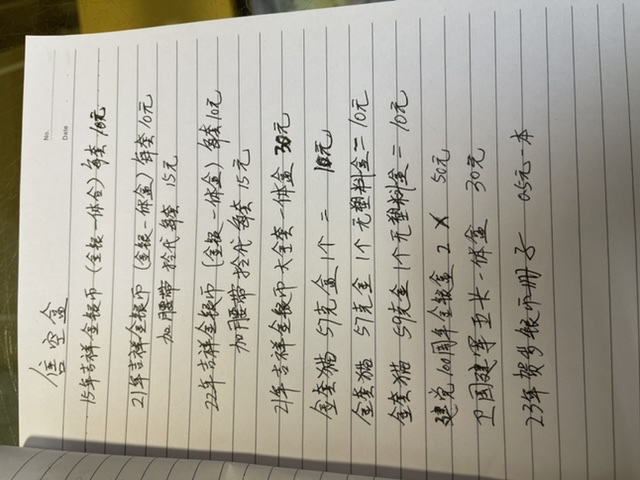 No.
Date
售空盒
15年吉祥金银币(金银一体盒)每套10元
21年吉祥金银币(金银一体盒)每套10元
加腰带 手提袋每套15元
22年吉祥金银币(金银一体盒)每套10元
加腰带 每套15元
21年吉祥金银币大全套一体盒30元
金套猫 57克盒1个=10元
金套猫 57克盒1个无塑料盒=10元
金套猫 59克盒1个无塑料盒=10元
建党100周年金银盒2× 50元
卫国建军 一体盒 30元
23年贺岁银币册子 0.5元一本